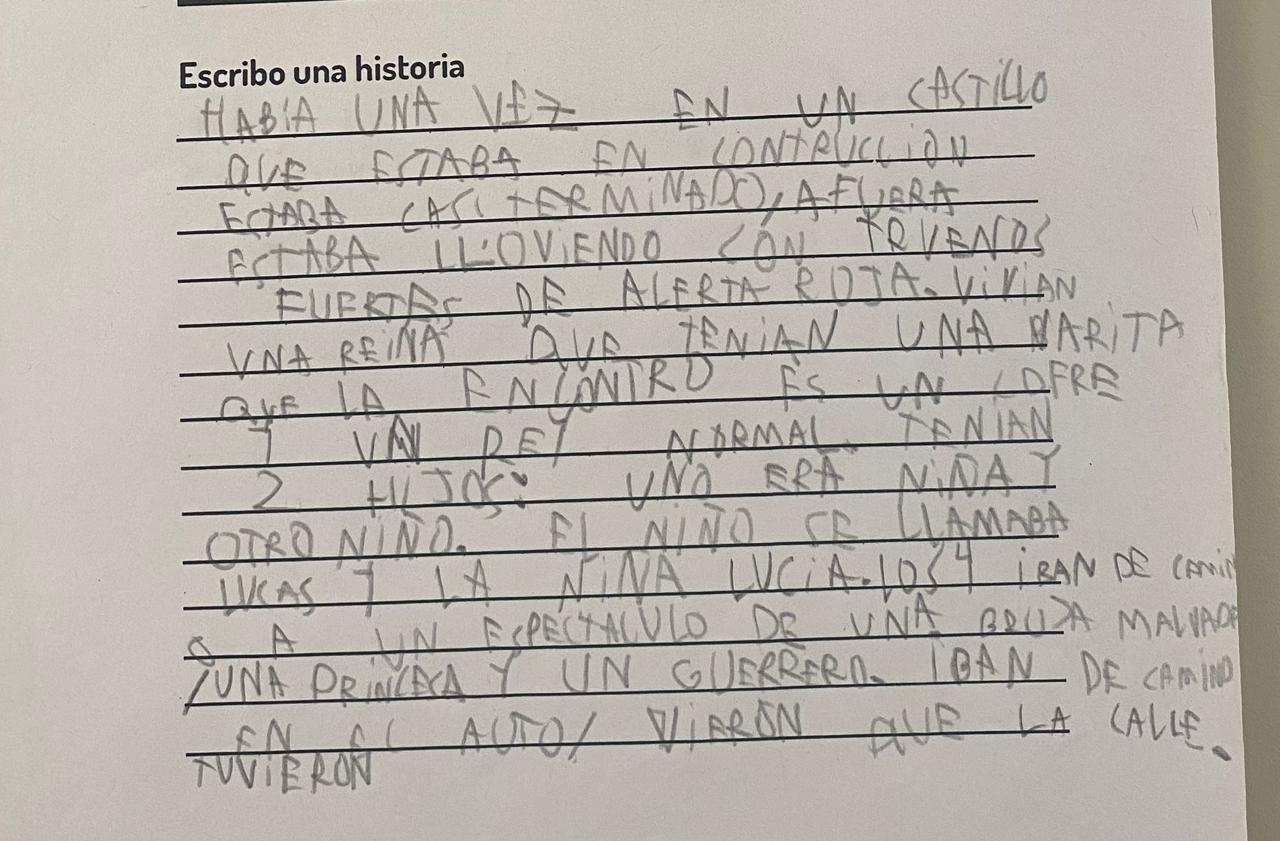 Escribo una historia
HABÍA UNA VEZ EN UN CASTILLO
QUE ESTABA EN CONTRUCCION
ESTABA CASI TERMINADO, AFUERA
ESTABA LLOVIENDO CON TRUENOS
FUERTES DE ALERTA ROJA. VIVIAN
UNA REINA QUE TENIAN UNA VARITA
QUE LA ENCONTRO ES UN COFRE
Y UN REY NORMAL. TENIAN
2 HIJOS: UNO ERA NIÑA Y
OTRO NIÑO. EL NIÑO SE LLAMABA
LUCAS Y LA NIÑA LUCIA. LOS 4 IBAN DE CAMIN
O A UN ESPECTACULO DE UNA BRUJA MALVADA
, UNA PRINCESA Y UN GUERRERO. IBAN DE CAMINO
EN EL AUTO, VIERON QUE LA CALLE.
TUVIERON